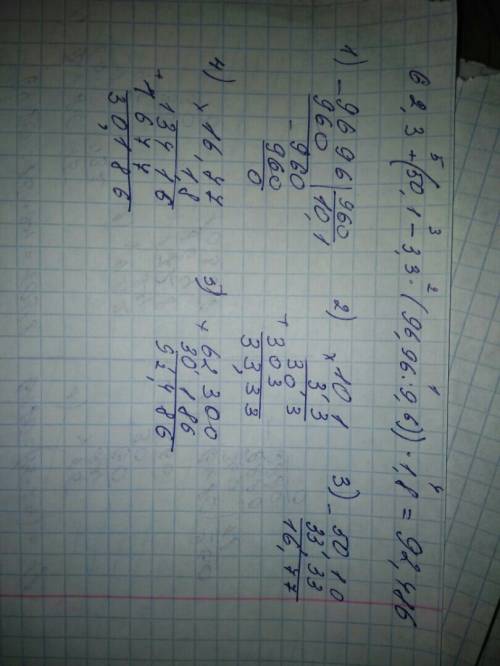 62,3+(50,1-3,3·(96,96:9,6))·1,8=92,486
5 3 2 1 4
1) -9696|960
960 10,1
-960
960
0
2) ×10,1
3,3
+30,3
303
33,33
3) -50,10
33,33
16,77
4) ×16,77
1,8
+13416
1677
30,186
5) +62,300
30,186
92,486